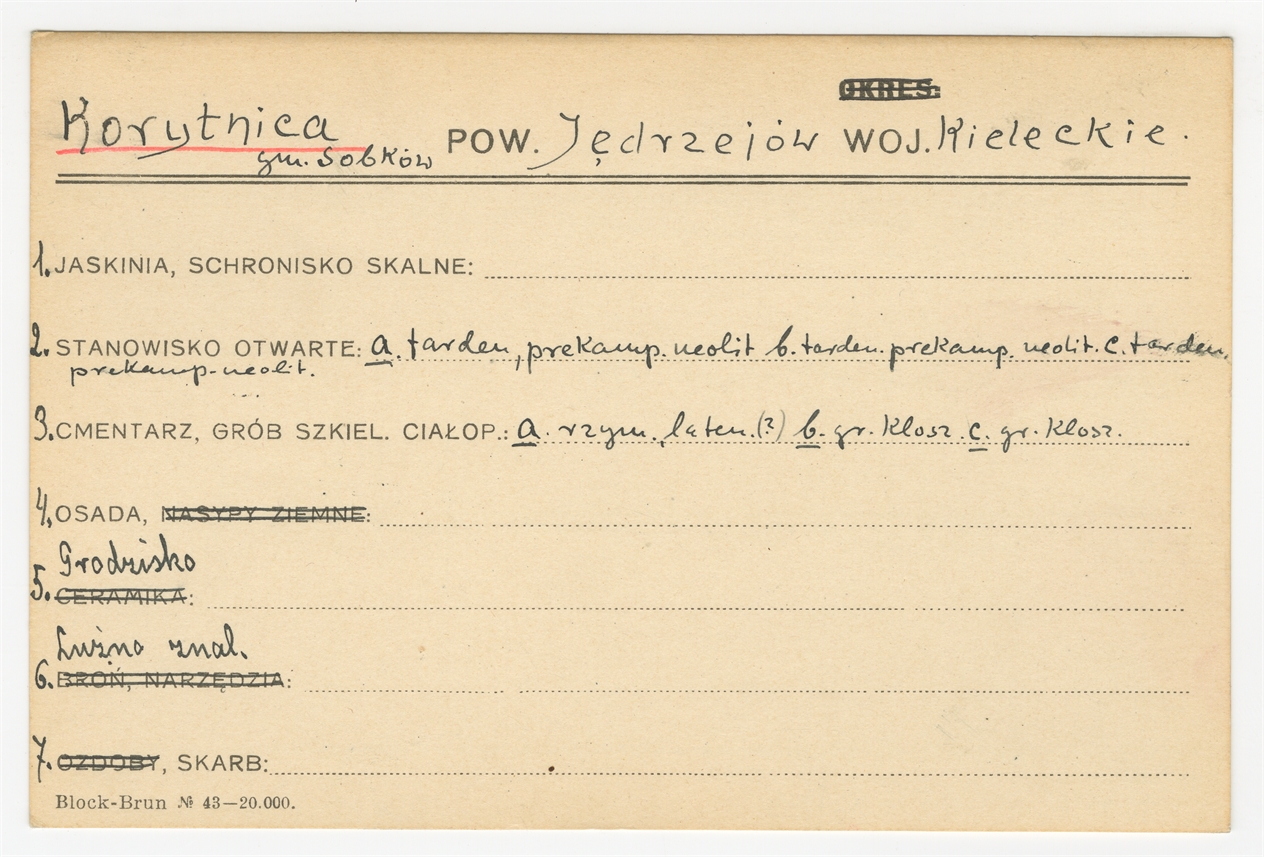 OKRES:
Korytnica POW. Jędrzejów WOJ. Kieleckie.
gm. Sobków
1. JASKINIA, SCHRONISKO SKALNE:
2. STANOWISKO OTWARTE: a. tarden., prekamp. neolit b. tarden. prekamp. neolit. c. tarden.
prekamp. neolit.
3. CMENTARZ, GRÓB SZKIEL. CIAŁOP.: a. rzym., laten. (?) b. gr. klosz. c. gr. klosz.
4. OSADA, NASYPY ZIEMNE:
Grodzisko
5. CERAMIKA:
Luźno znal.
6. BROŃ, NARZĘDZIA:
7. OZDOBY, SKARB:
Block-Brun № 43—20.000.